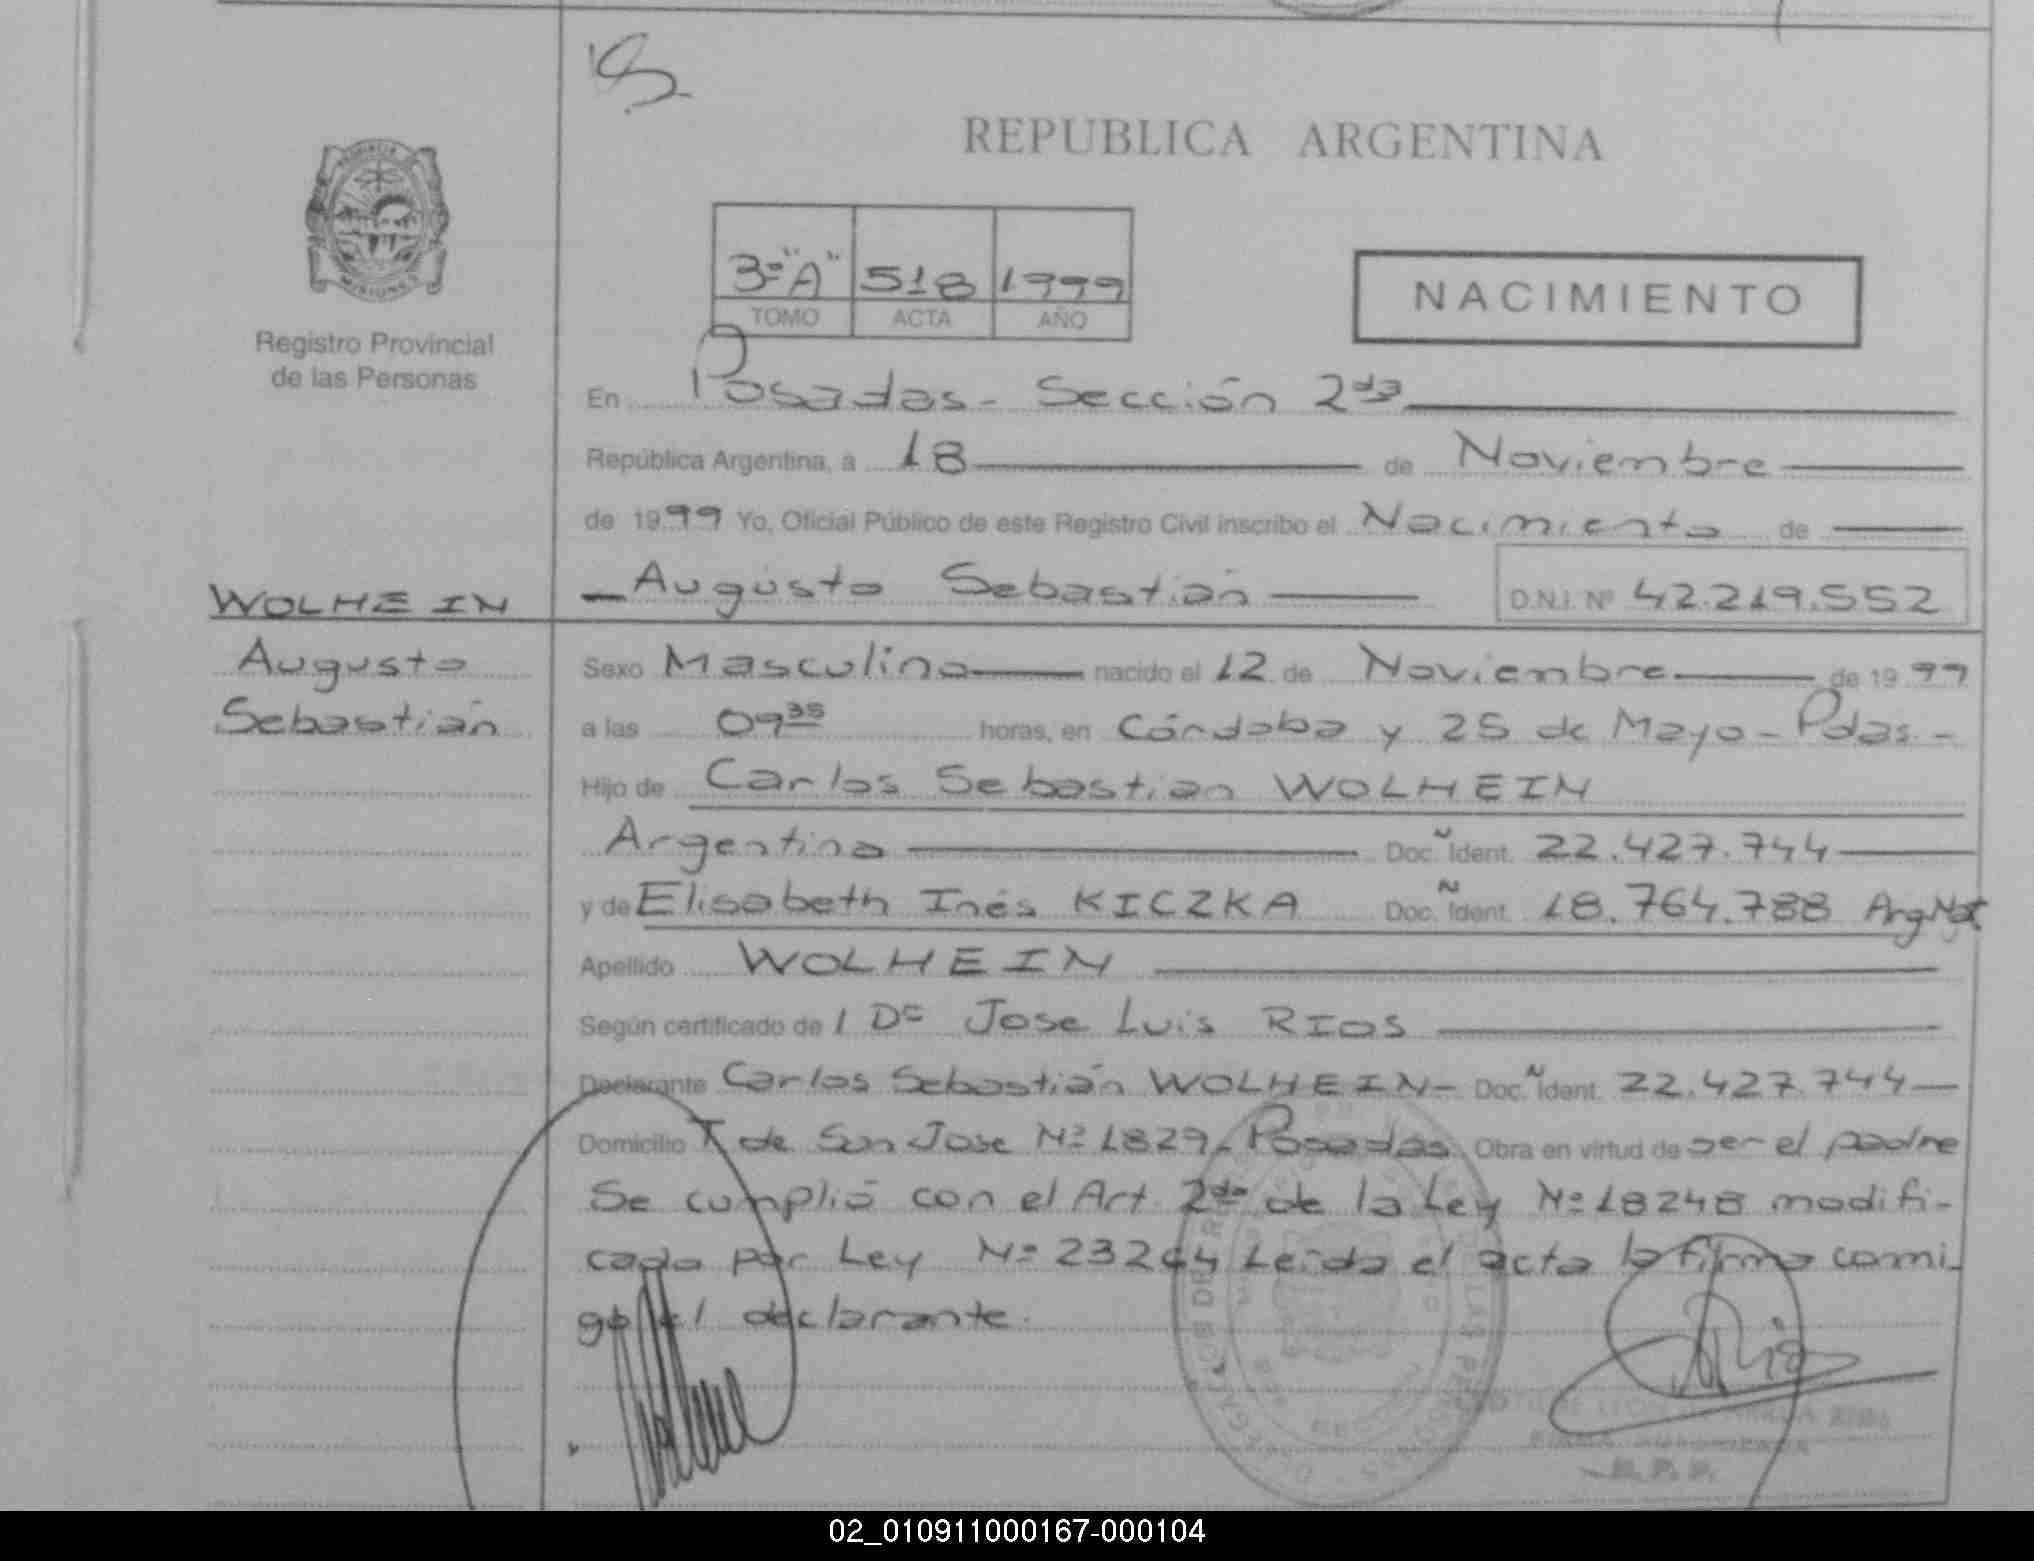 REPUBLICA ARGENTINA
PROVINCIA
MISIONES
Registro Provincial
de las Personas
3º "A" 518 1999
TOMO ACTA AÑO
NACIMIENTO
En Posadas - Sección 2da
República Argentina, a 18 de Noviembre
de 1999 Yo, Oficial Público de este Registro Civil inscribo el Nacimiento de
Augusto Sebastián D.N.I. Nº 42.219.552
WOLHEIN
Augusto
Sebastián
Sexo Masculino nacido el 12 de Noviembre de 1999
a las 09 35 horas, en Córdoba y 25 de Mayo - Pdas. -
Hijo de Carlos Sebastian WOLHEIN
Argentino Doc. Ident. 22.427.744
y de Elisabeth Inés KICZKA Doc. Ident. 18.764.788 Arg Nat
Apellido WOLHEIN
Según certificado de / Dr Jose Luis RIOS
Declarante Carlos Sebastián WOLHEIN - Doc. Ident. 22.427.744
Domicilio T. de San Jose Nº 1829 - Posadas Obra en virtud de ser el padre
Se cumplió con el Art. 2do de la Ley Nº 18248 modifi-
cado por Ley Nº 23264 Leída el acta la firma conmi-
go el declarante.
FIRMA AUTORIZADA
R.P.P.
02_010911000167-000104